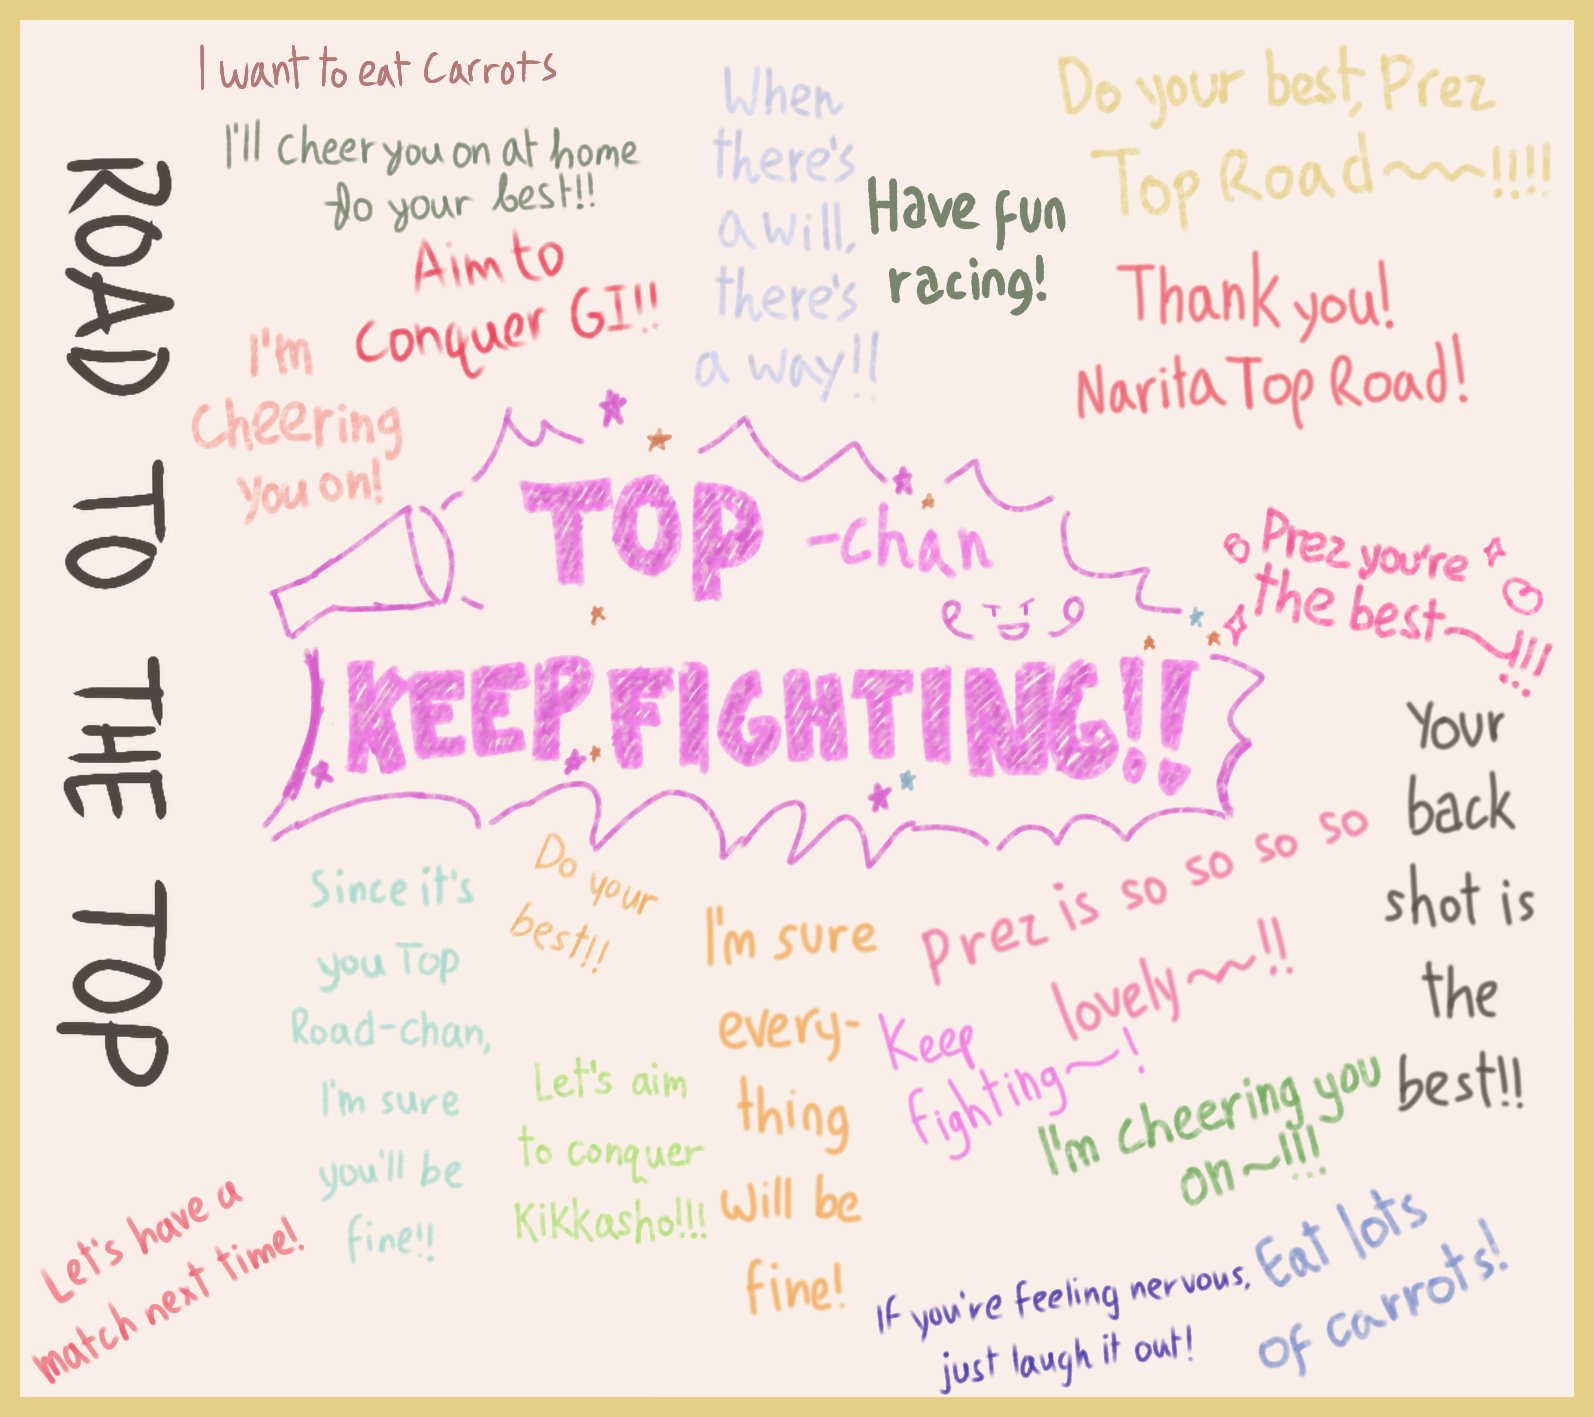 ROAD TO THE TOP
I want to eat Carrots
I'll Cheer you on at home
Do your best!!
Aim to
Conquer GI!!
I'm
Cheering
you on!
When
there's
a will,
there's
a way!!
Have fun
racing!
Do your best, Prez
Top Road~~!!!!
Thank you!
Narita Top Road!
TOP -chan
KEEP FIGHTING!!
Prez you're
the best~!!!
Your
back
shot is
the
best!!
Since it's
you Top
Road-chan,
I'm sure
you'll be
fine!!
Do your
best!!
Let's aim
to conquer
Kikkasho!!!
I'm sure
every-
thing
will be
fine!
Prez is so so so so
lovely~~!!
Keep
fighting~!
I'm cheering you
on~!!!
Let's have a
match next time!
If you're feeling nervous,
just laugh it out!
Eat lots
of carrots!